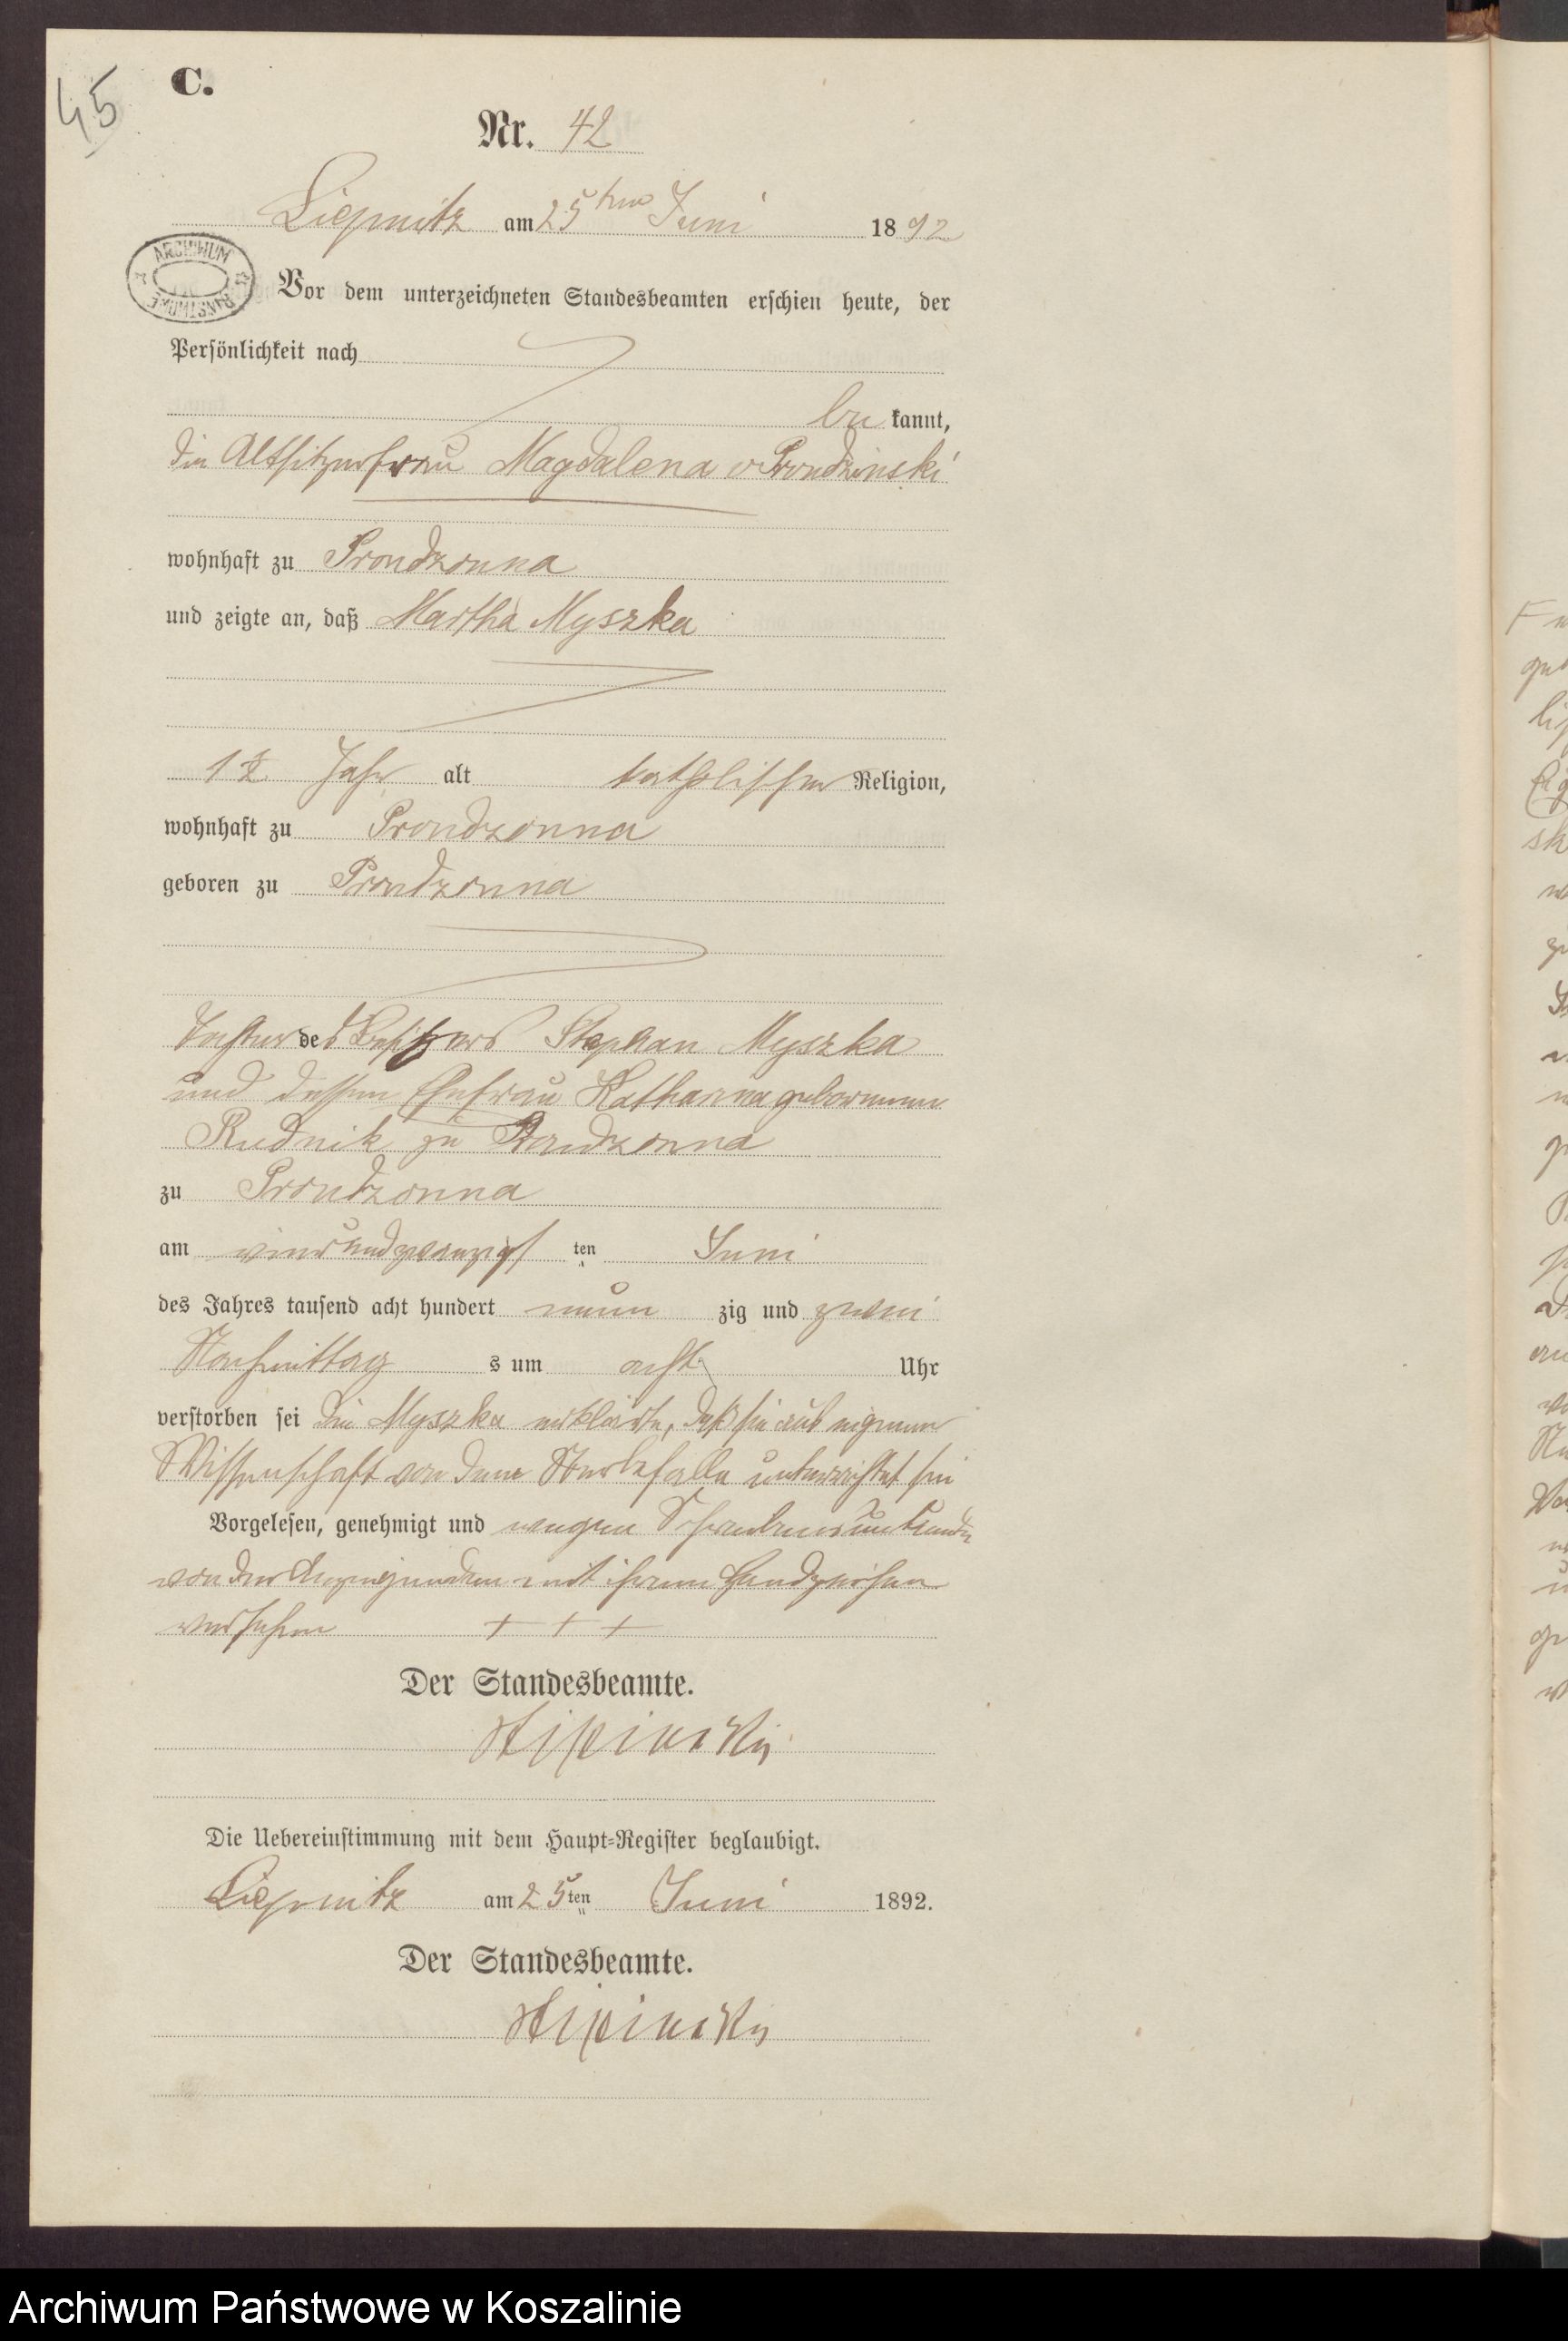 45
C.
Nr. 42
Liepnitz am 25ten Juni 1892
ARCHIWUM PAŃSTWOWE
Vor dem unterzeichneten Standesbeamten erschien heute, der
Persönlichkeit nach
bekannt,
die Altsitzerfrau Magdalena v Prondzinski
wohnhaft zu Prondzonna
und zeigte an, daß Martha Myszka
Jahr alt katholischer Religion,
wohnhaft zu Prondzonna
geboren zu Prondzonna
Tochter des Besitzers Stephan Myszka
und dessen Ehefrau Katharina geborenen
Rudnik zu Prondzonna
zu Prondzonna
am vierundzwanzigsten Juni
des Jahres tausend acht hundert neunzig und zwei
Nachmittags um acht Uhr
verstorben sei die Myszka erklärte, daß sie aus eigener
Wissenschaft von dem Sterbefalle unterrichtet sei
Vorgelesen, genehmigt und wegen Schreibensunkunde
von der Anzeigenden mit ihrem Handzeichen
versehen + + +
Der Standesbeamte.
Die Uebereinstimmung mit dem Haupt-Register beglaubigt.
Liepnitz am 25ten Juni 1892.
Der Standesbeamte.
Archiwum Państwowe w Koszalinie